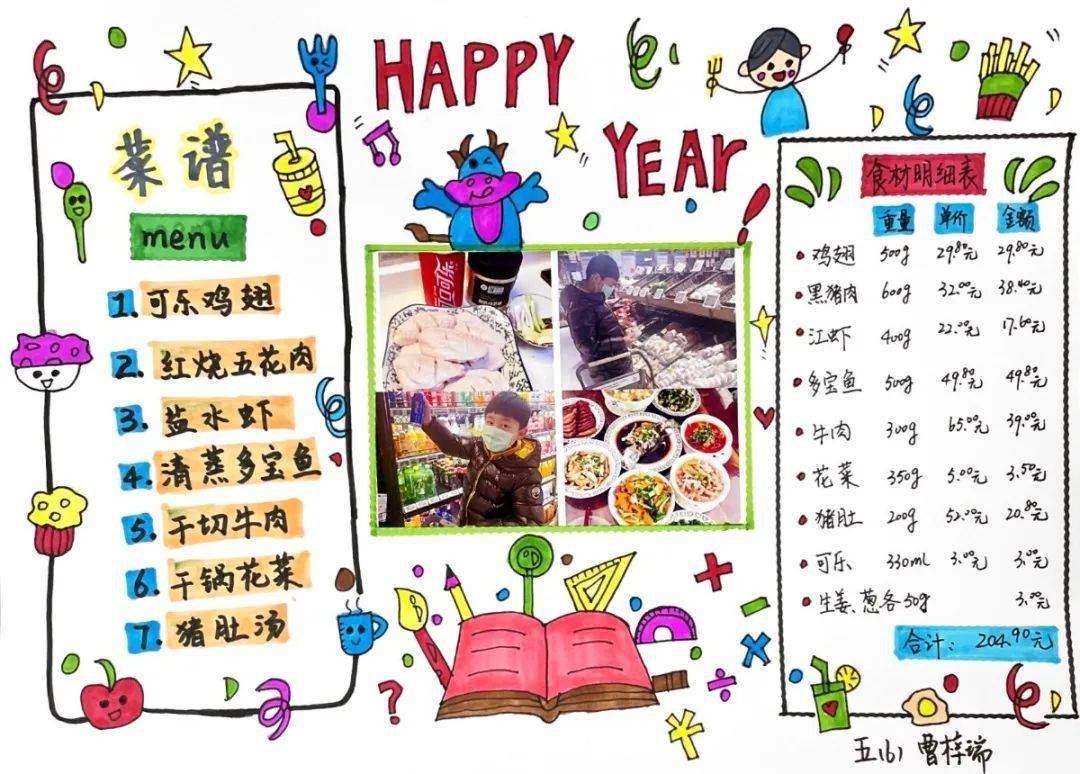 HAPPY
YEAR
菜谱
menu
1. 可乐鸡翅
2. 红烧五花肉
3. 盐水虾
4. 清蒸多宝鱼
5. 干切牛肉
6. 干锅花菜
7. 猪肚汤
可口可乐
食材明细表
重量 单价 金额
鸡翅 500g 29.80元 29.80元
黑猪肉 600g 32.00元 38.40元
江虾 400g 22.00元 17.60元
多宝鱼 500g 49.80元 49.80元
牛肉 300g 65.00元 39.00元
花菜 350g 5.00元 3.50元
猪肚 200g 52.00元 20.80元
可乐 330ml 3.00元 3.00元
生姜、葱各50g 3.00元
合计: 204.90元
五(6) 曹梓